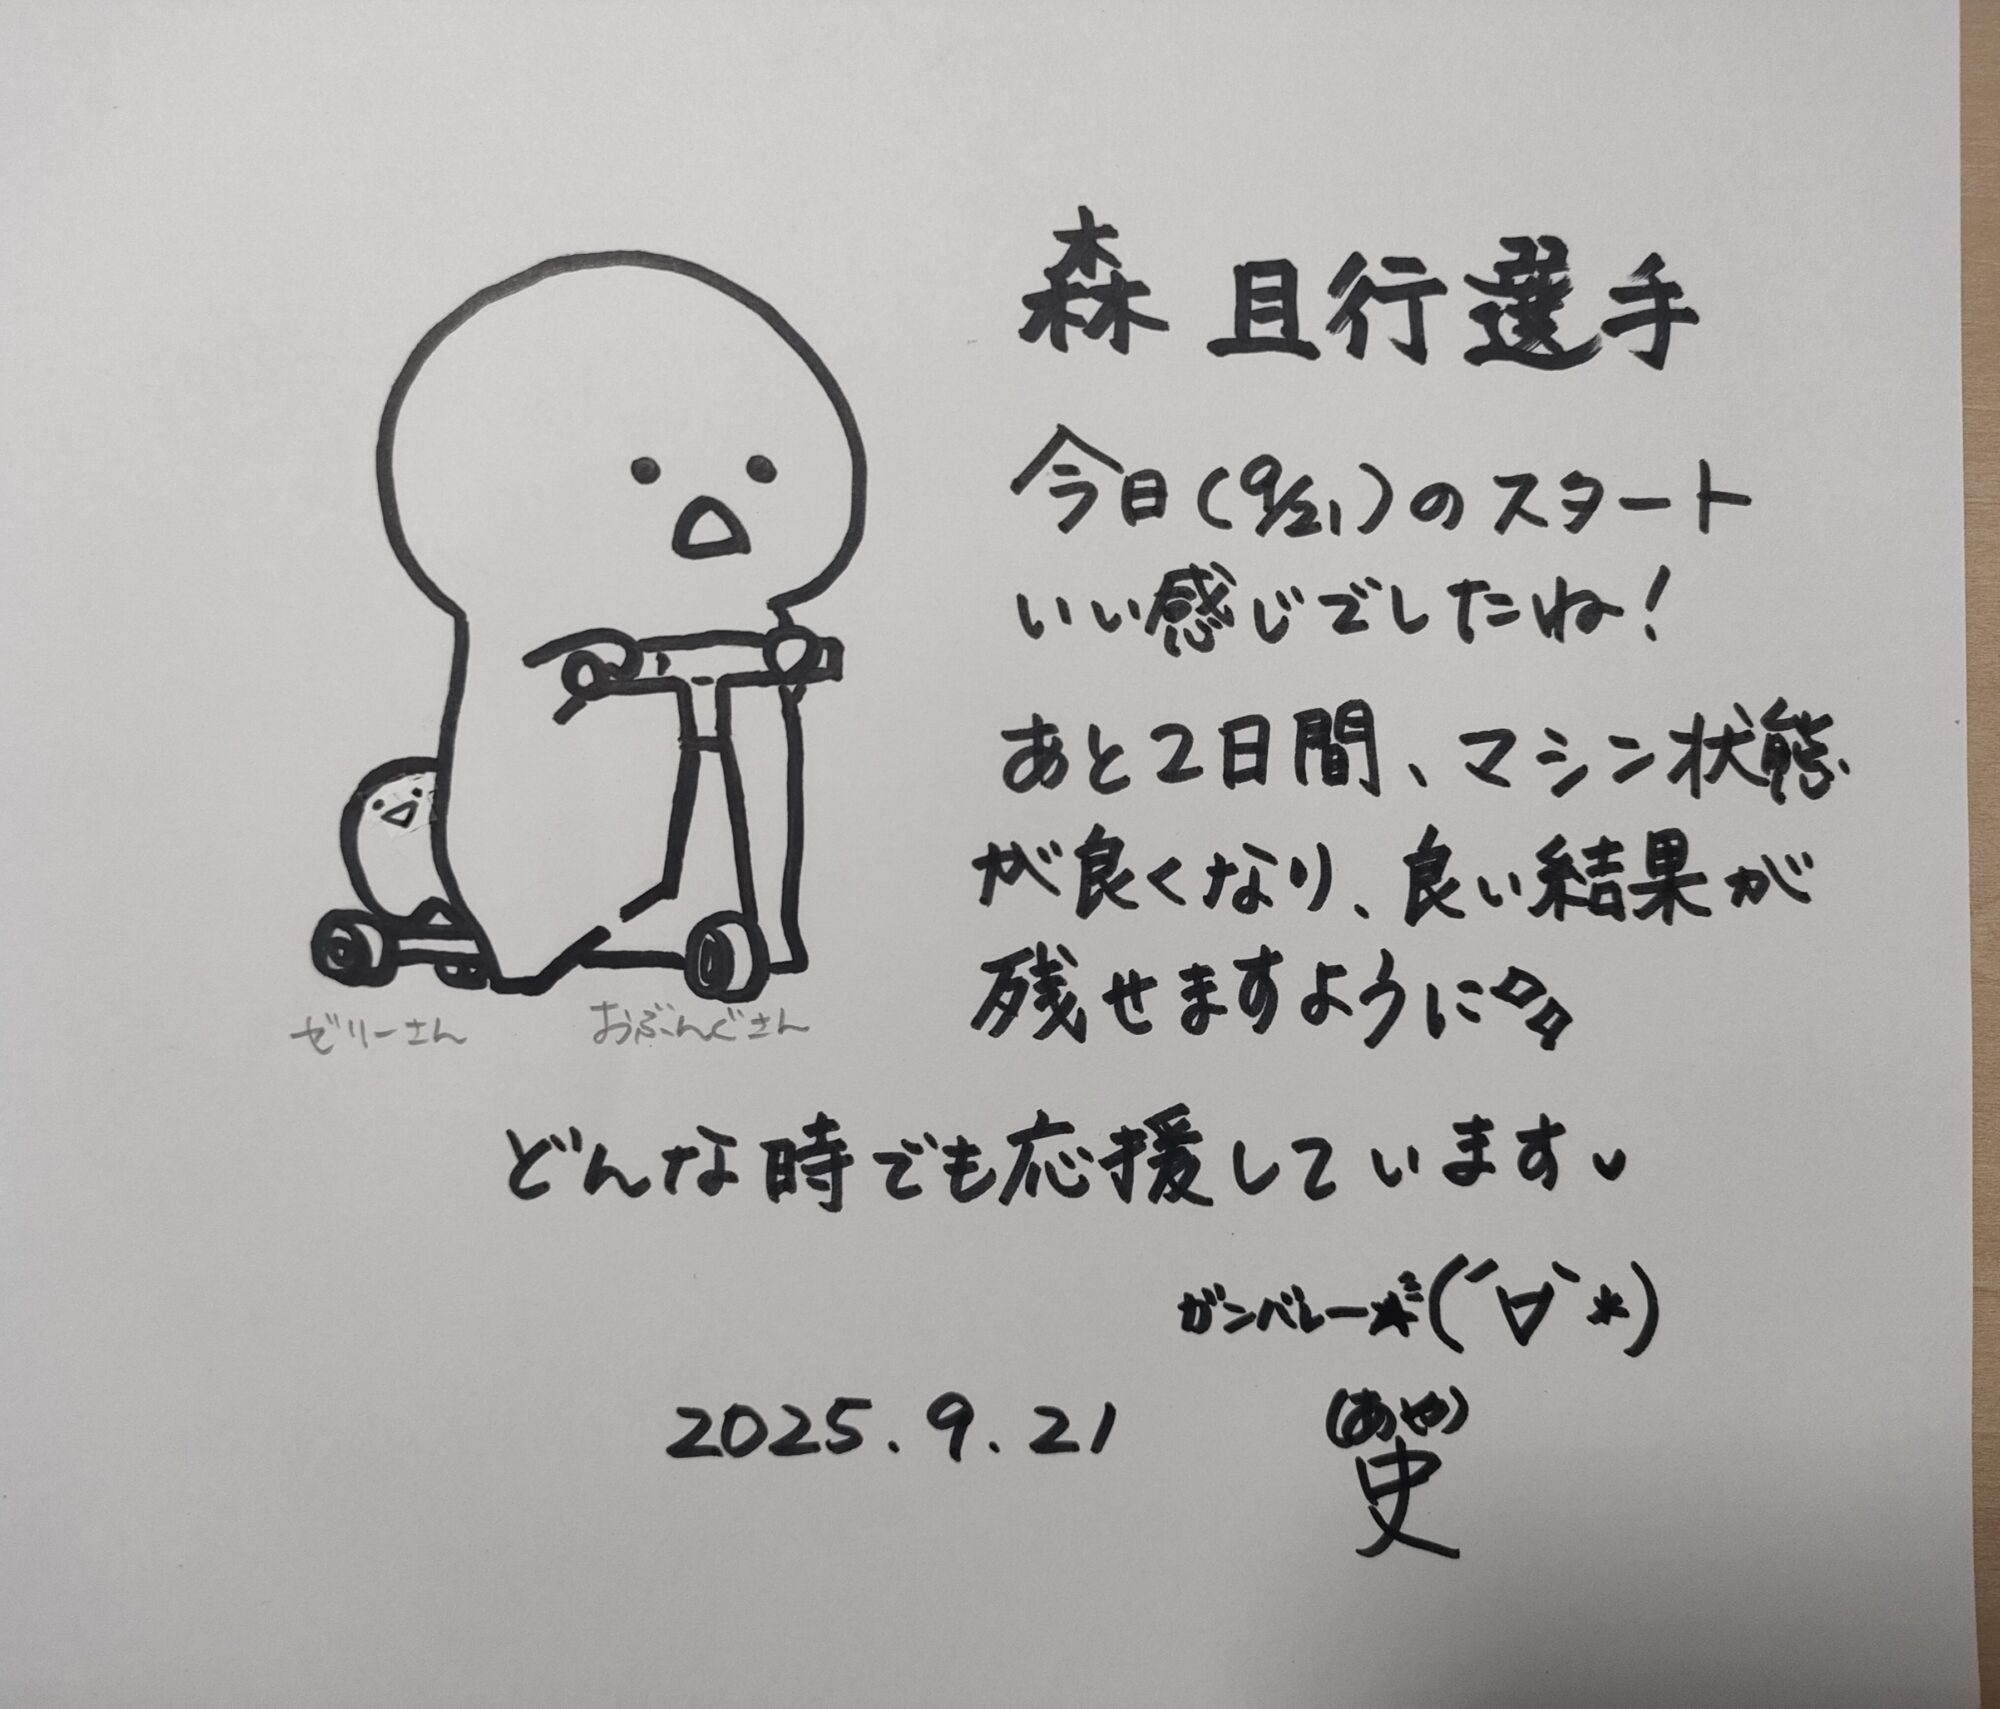 森 且行選手
今日(9/21)のスタート
いい感じでしたね!
あと2日間、マシン状態
が良くなり、良い結果が
残せますように
ゼリーさん
おぶんぐさん
どんな時でも応援しています
ガンバレー(´∀`*)
2025.9.21
(あや)
史